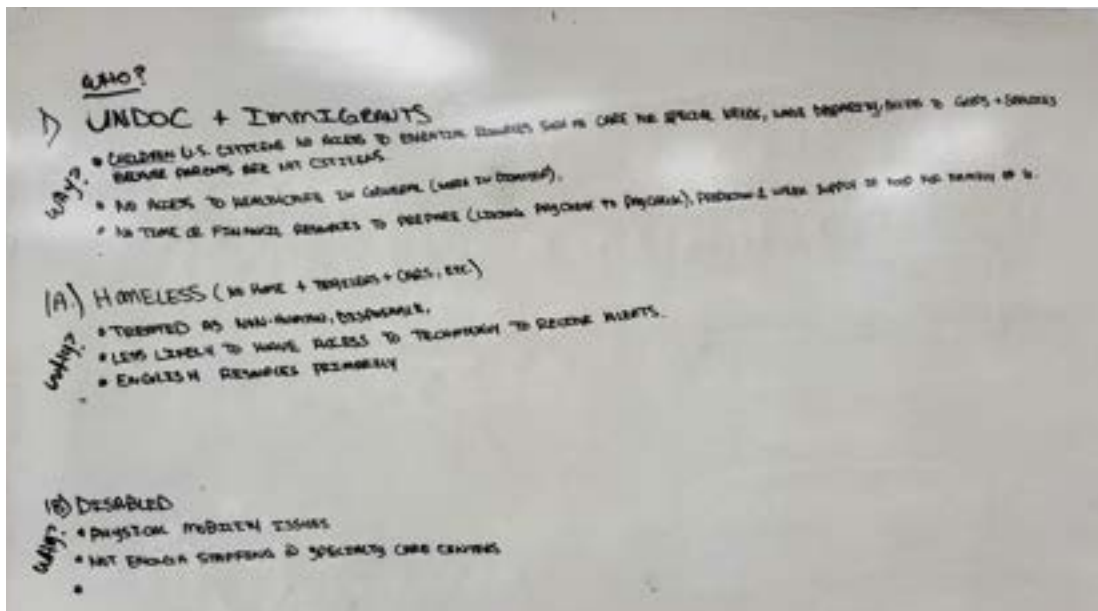 WHO?
1) UNDOC + IMMIGRANTS
WHY?
• CHILDREN U.S. CITIZENS NO ACCESS TO RESOURCES SUCH AS CARE FOR SPECIAL NEEDS, DISPARITY, ACCESS TO GOODS + SERVICES
BECAUSE PARENTS ARE NOT CITIZENS.
• NO ACCESS TO HEALTHCARE IN GENERAL
• NO TIME OR FINANCIAL RESOURCES TO PREPARE (LIVING PAYCHECK TO PAYCHECK), WEEK SUPPLY OF FOOD FOR FAMILY OF 6.
(A.) HOMELESS (NO HOME + TRAILERS + CARS, ETC.)
WHY?
• TREATED AS NON-HUMAN, DISPOSABLE,
• LESS LIKELY TO HAVE ACCESS TO TECHNOLOGY TO RECEIVE ALERTS.
• ENGLISH RESOURCES PRIMARILY
(B) DISABLED
WHY?
• PHYSICAL MOBILITY ISSUES
• NOT ENOUGH STAFFING @ SPECIALTY CARE CENTERS
•